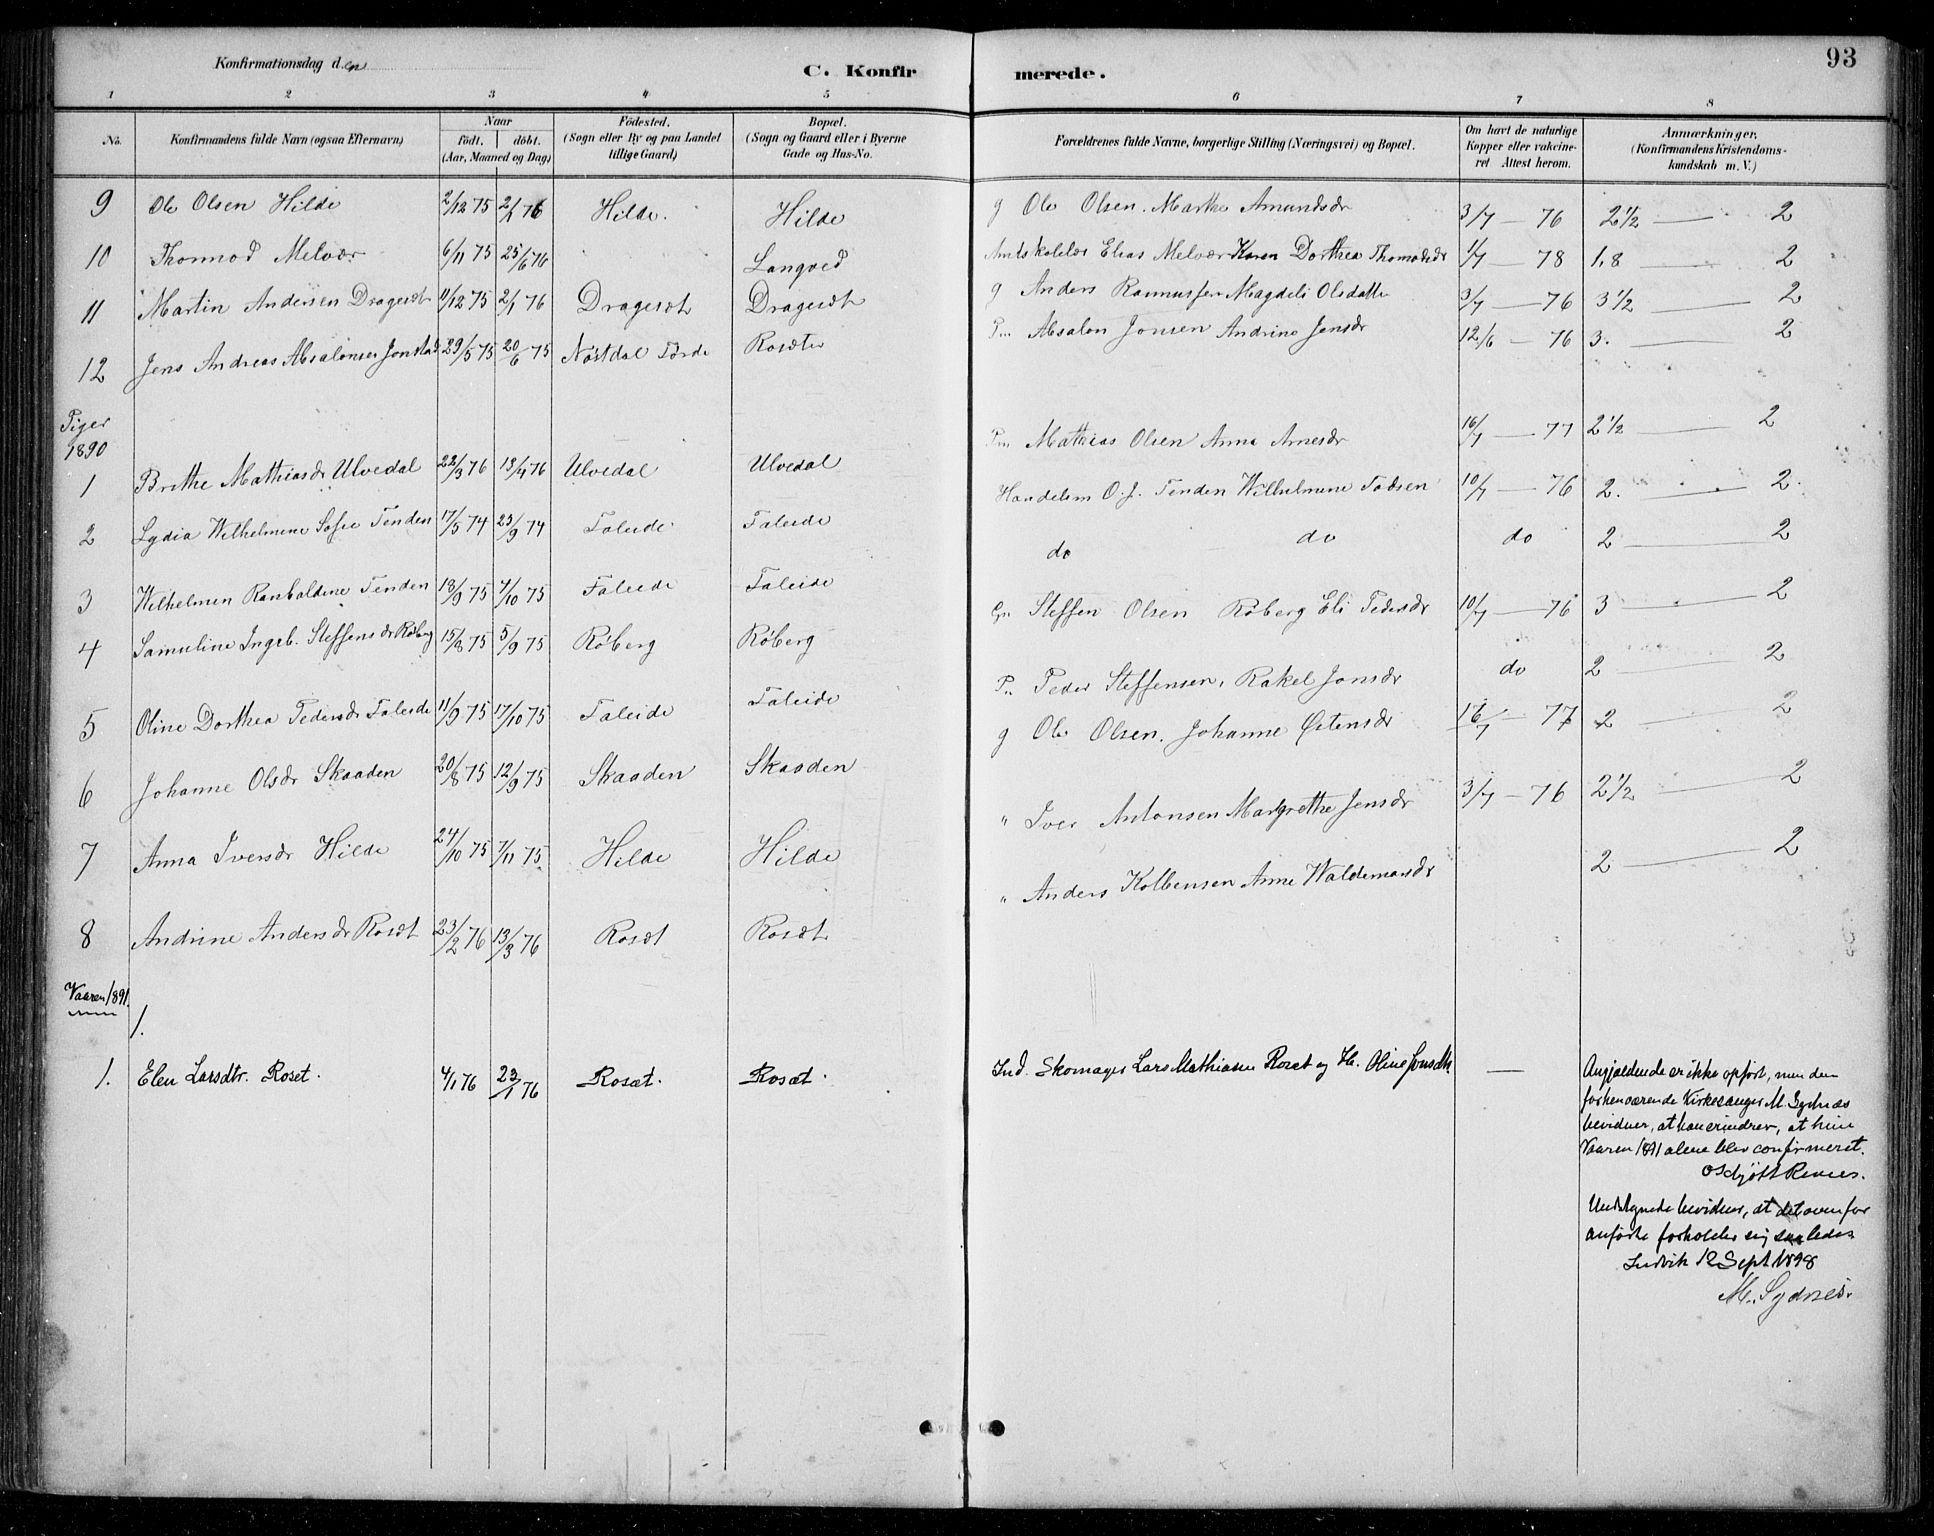 Konfirmationsdag den
C. Konfirmerede.
93
1 2 3 4 5 6 7 8
No. Konfirmandens fulde Navn (ogsaa Efternavn) Naar födt. döbt. (Aar, Maaned og Dag) Födested. (Sogn eller By og paa Landet tillige Gaard) Bopæl. (Sogn og Gaard eller i Byerne Gade og Hus-No. Forældrenes fulde Navne, borgerlige Stilling (Næringsvei) og Bopæl. Om havt de naturlige Kopper eller vakcineret Attest herom. Anmærkninger. (Konfirmandens Kristendomskundskab m. V.)
9 Ole Olsen Hilde 2/12 75 2/1 76 Hilde. Hilde g Ole Olsen. Marthe Amundsdr 3/7 — 76 2 1/2 — 2
10 Thormod Melvær 6/11 75 25/6 76 Langved Amtskolelær Elias Melvær Karen Dorthea Thomasdr 1/7 — 78 1,8 2
11 Martin Andersen Dragesæt 11/12 75 2/1 76 Dragesæt Dragesæt g Anders Rasmussen Magdeli Olsdatter 3/7 — 76 3 1/2 — 2
12 Jens Andreas Absalonsen Jonstad 29/5 75 20/6 75 Nöstdal Förde Rosæter P... Absalon Jonsen Andrine Jonsdr 12/6 — 76 3. — 2
Piger
1890
1 Brithe Mathiasdr Ulvedal 22/3 76 13/4 76 Ulvedal Ulvedal Pm Mathias Olsen Anna Arnesdr 16/7 — 77 2 1/2 — 2
2 Lydia Wilhelmine Sofie Tenden 17/5 74 23/9 74 Faleide Faleide Handelsm O. J. Tenden Wilhelmine Fadsen 10/7 — 76 2. — 2.
3 Wilhelmen Ranbaldine Tenden 18/9 75 4/10 75 Faleide Faleide do do do 2 — 2
4 Samuline Ingeb. Steffensdr Röberg 15/8 75 5/9 75 Röberg Röberg Gr Steffen Olsen Röberg Eli Pedersdr 10/7 — 76 3 — 2
5 Oline Dorthea Pedersdr Faleide 11/9 75 17/10 75 Faleide Faleide P.. Peder Steffensen, Rakel Jonsdr do 2 — 2
6 Johanne Olsdr Skaaden 20/8 75 12/9 75 Skaaden Skaaden g Ole Olsen. Johanne Östensdr 16/7 — 77 2 — 2
7 Anna Iversdr Hilde 24/10 75 7/11 75 Hilde Hilde " Iver Antonsen Margrethe Jensdr 3/7 — 76 2 1/2 — 2
8 Andrine Andersdr Rosæt 23/2 76 13/3 76 Rosæt Rosæt " Anders Kolbensen Anne Waldemarsdr 2 — 2
Vaaren 1891.
1.
1. Elen Larsdtr. Roset. 4/1 76 23/1 76 Rosæt. Rosæt. Ind. Skomager Lars Mathiasen Roset og H. Oline Jonsdtr. —
Angjældende er ikke opfört, men den
forhenværende Kirkesanger M. Sydnæs
bevidner, at han erindrer, at hun
Vaaren 1891 alene blev confirmeret.
Undertegnede bevidner, at det ovenfor
anförte forholder sig saaledes
Indvik 12 Sept 1898
M. Sydnes.